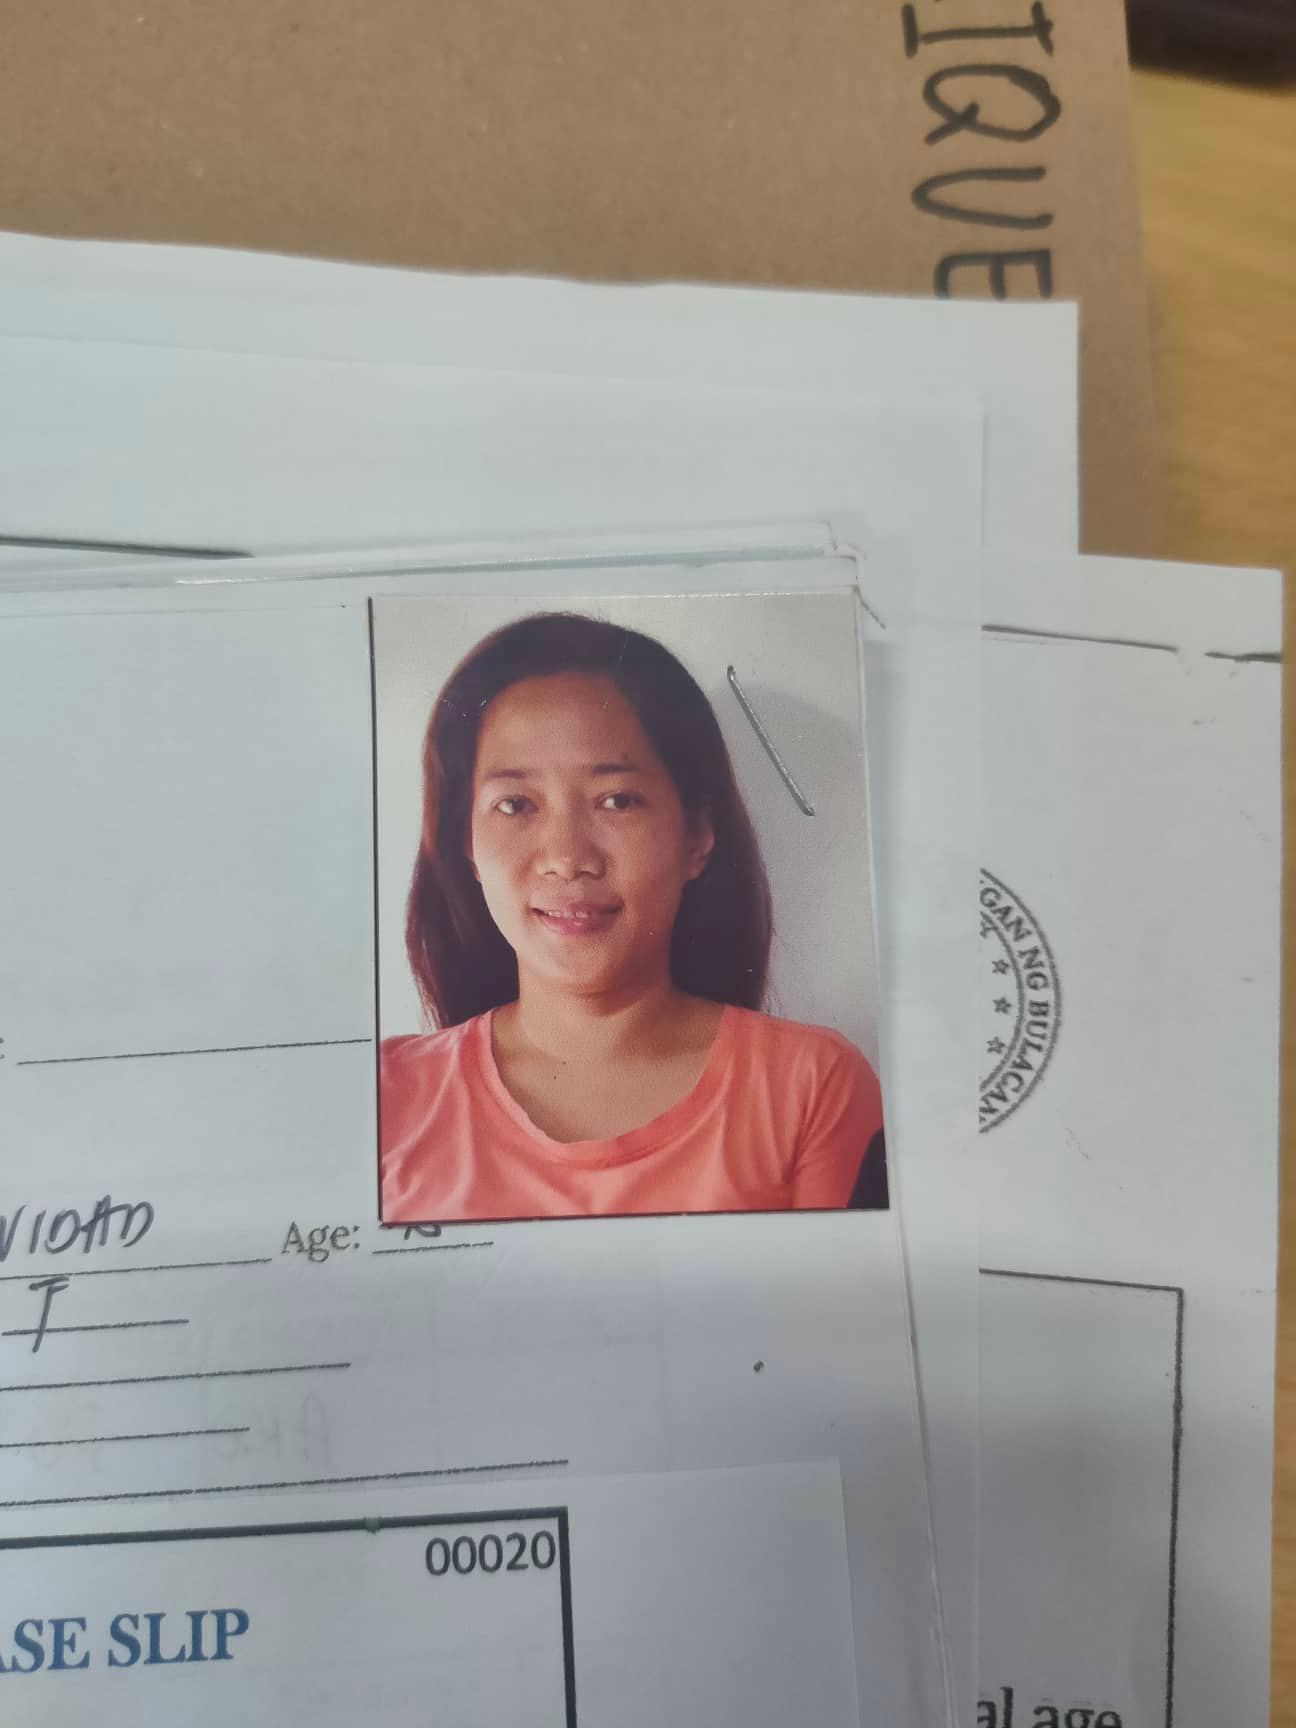 IQUE
GAN NG BULACAN
VIDAD Age:
I
00020
ASE SLIP
al age